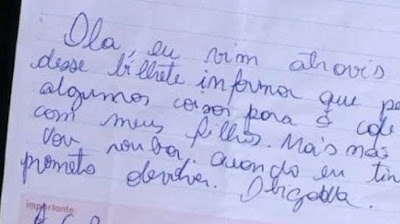 Ola, eu vim atrovis
desse bilhete informar que pe
algumas coisas para o cafe
com meus filhos. Mais não
vou roubar. quando eu tin
prometo devolver. Obrigada.
importante